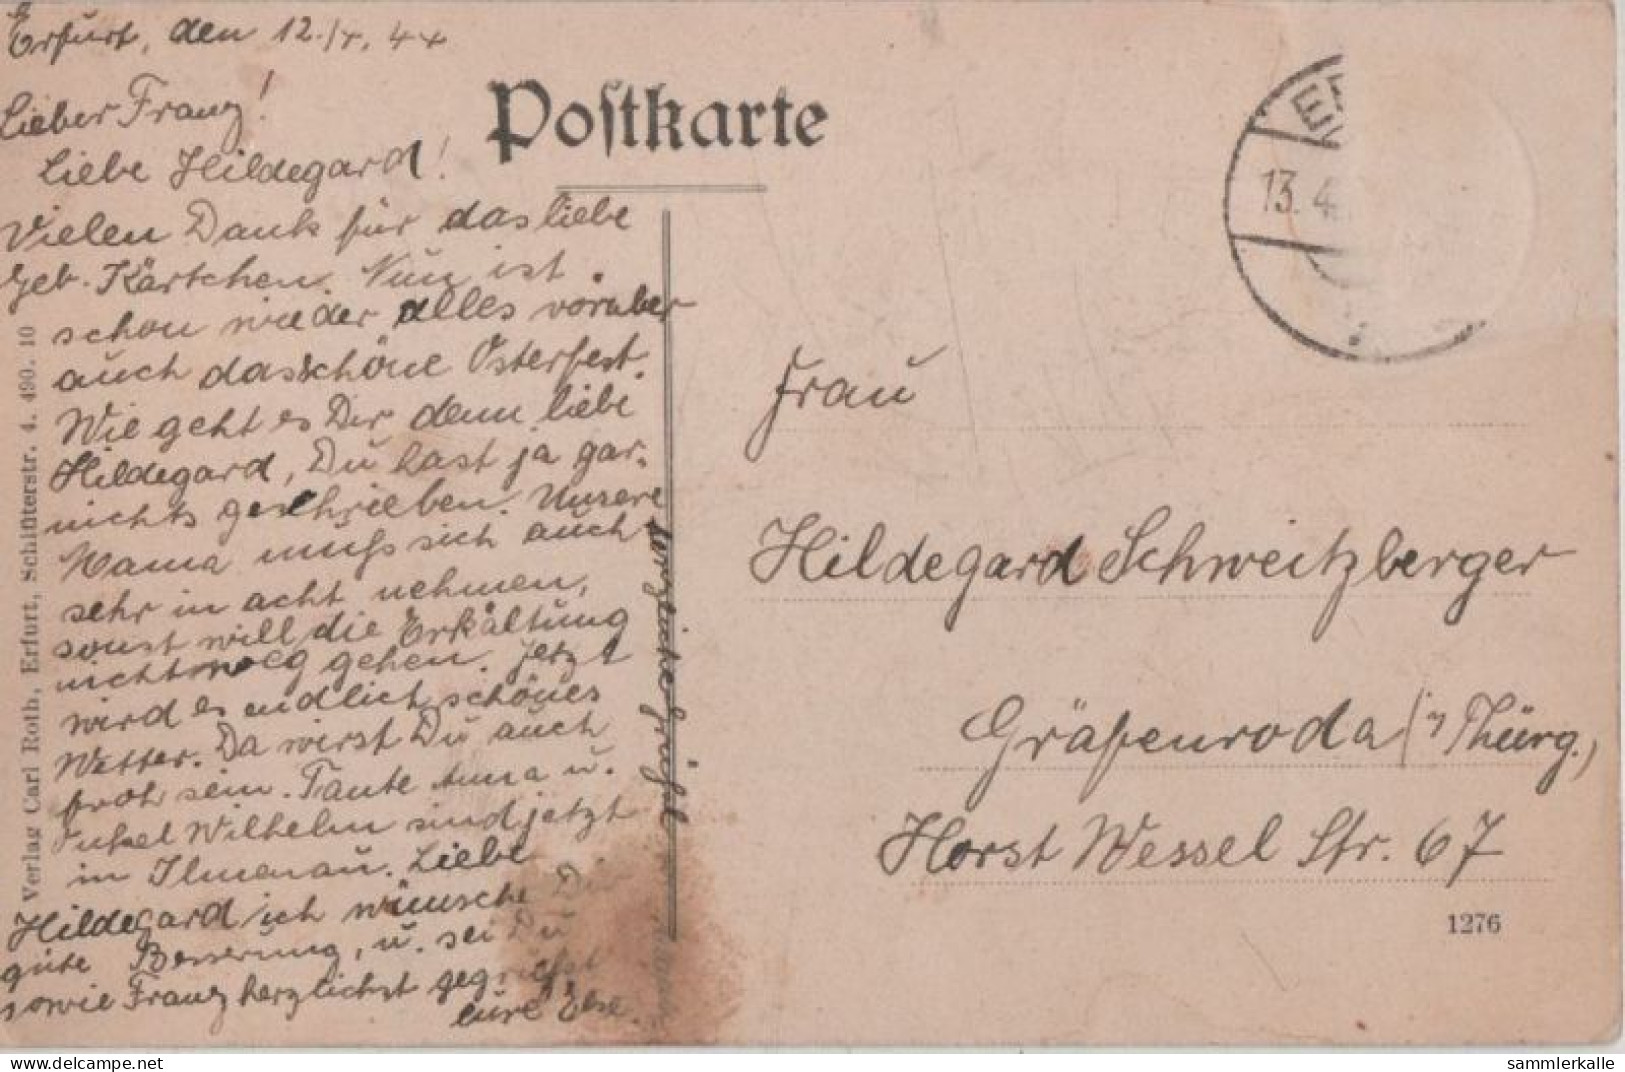 Erfurt, den 12./4. 44
Lieber Franz!
Liebe Hildegard!
Vielen Dank für das liebe
Geb. Kärtchen. Nun ist
schon wieder alles vorüber
auch das schöne Osterfest.
Wie geht es Dir denn liebe
Hildegard, Du hast ja gar
nichts geschrieben. Unsere
Mama muß sich auch
sehr in acht nehmen,
sonst will die Erkältung
nicht weg gehen. Jetzt
wird es endlich schönes
Wetter. Da wirst Du auch
froh sein. Tante u.
Onkel Wilhelm sind jetzt
in Ilmenau. Liebe
Hildegard ich wünsche Dir
gute Besserung, u. sei Du
sowie Franz herzlichst gegrüßt
eure Else.
Verlag Carl Roth, Erfurt, Schlüterstr. 4. 490. 10
Postkarte
13. 4
Frau
Hildegard Schweitzberger
Gräfenroda (Thürg.)
Horst Wessel Str. 67
1276
hippostcard.com/store/Veikkos
sammlerkalle